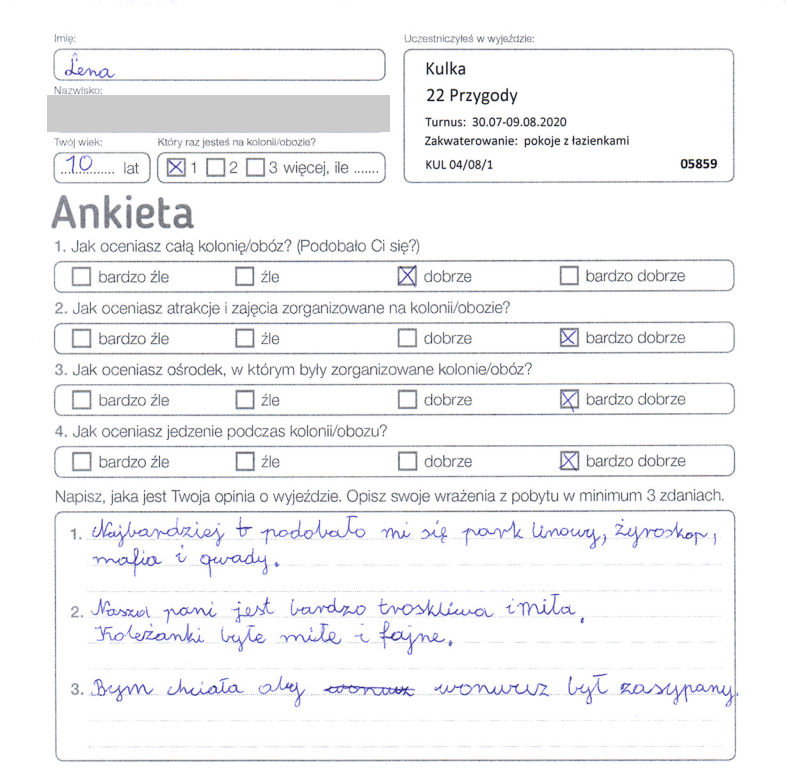 Imię:
Lena
Nazwisko:
Twój wiek:
10 lat
Który raz jesteś na kolonii/obozie?
1 2 3 więcej, ile .......
Uczestniczyłeś w wyjeździe:
Kulka
22 Przygody
Turnus: 30.07-09.08.2020
Zakwaterowanie: pokoje z łazienkami
KUL 04/08/1 05859
Ankieta
1. Jak oceniasz całą kolonię/obóz? (Podobało Ci się?)
bardzo źle źle dobrze bardzo dobrze
2. Jak oceniasz atrakcje i zajęcia zorganizowane na kolonii/obozie?
bardzo źle źle dobrze bardzo dobrze
3. Jak oceniasz ośrodek, w którym były zorganizowane kolonie/obóz?
bardzo źle źle dobrze bardzo dobrze
4. Jak oceniasz jedzenie podczas kolonii/obozu?
bardzo źle źle dobrze bardzo dobrze
Napisz, jaka jest Twoja opinia o wyjeździe. Opisz swoje wrażenia z pobytu w minimum 3 zdaniach.
1. Najbardziej podobało mi się park linowy, żyroskop,
mafia i qwady.
2. Nasza pani jest bardzo troskliwa i miła.
Koleżanki byłe miłe i fajne.
3. Bym chciała aby wonwuz był zasypany.